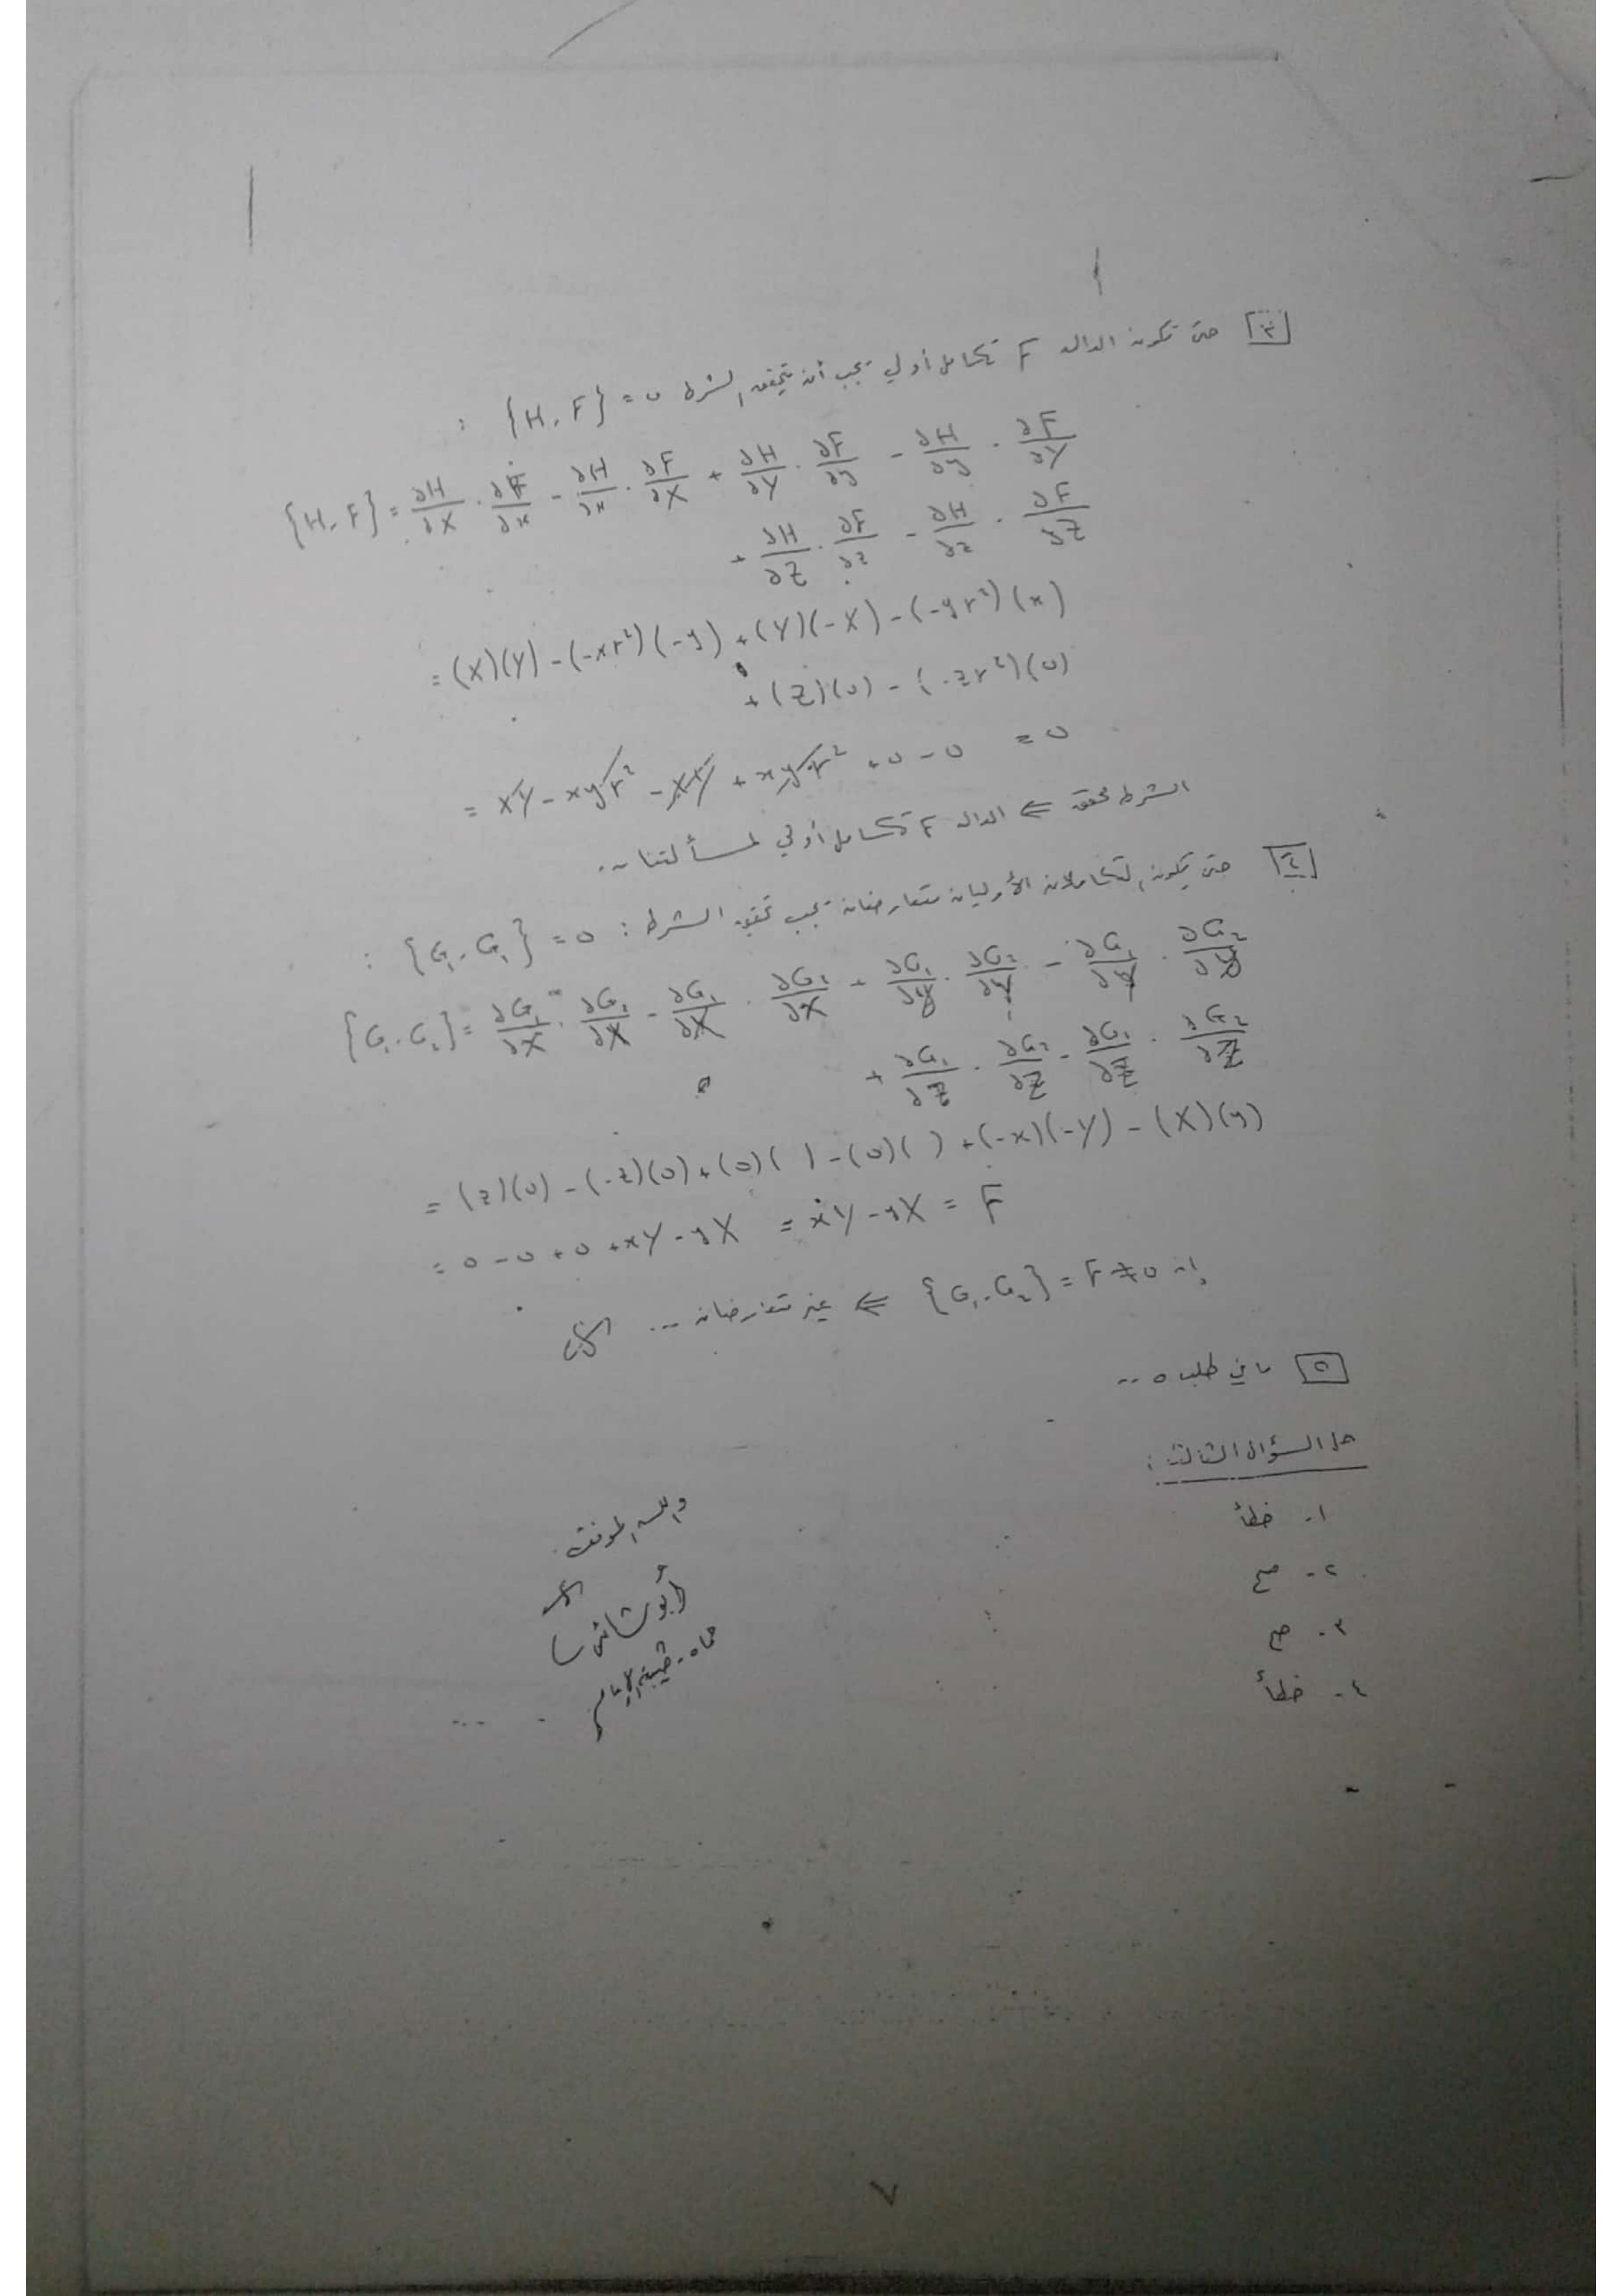 [٣] حتى تكون الدالة F تكامل أولي يجب أن يتحقق الشرط {H, F} = 0 :
{H, F} = ∂H/∂X · ∂F/∂x - ∂H/∂x · ∂F/∂X + ∂H/∂Y · ∂F/∂y - ∂H/∂y · ∂F/∂Y
+ ∂H/∂Z · ∂F/∂z - ∂H/∂z · ∂F/∂Z
= (X)(Y) - (-xr²)(-y) + (Y)(-X) - (-yr²)(x)
+ (Z)(0) - (-zr²)(0)
= XY - xyr² - XY + xyr² + 0 - 0 = 0
الشرط محقق ⇐ الدالة F تكامل أولي لمسألتنا ..
[٤] حتى يكون التكاملان الأوليان متعارضان يجب تحقق الشرط : {G₁, G₂} = 0 :
{G₁, G₂} = ∂G₁/∂X · ∂G₂/∂x - ∂G₁/∂x · ∂G₂/∂X + ∂G₁/∂y · ∂G₂/∂Y - ∂G₁/∂Y · ∂G₂/∂y
+ ∂G₁/∂Z · ∂G₂/∂z - ∂G₁/∂z · ∂G₂/∂Z
= (z)(0) - (-z)(0) + (0)( ) - (0)( ) + (-x)(-Y) - (X)(y)
= 0 - 0 + 0 + xY - yX = xY - yX = F
إن {G₁, G₂} = F ≠ 0 ⇐ غير متعارضان ...
[٥] ما في طلب ٥ ..
حل السؤال الثالث :
١- خطأ
٢- صح
٣- صح
٤- خطأ
والله الموفق
٧